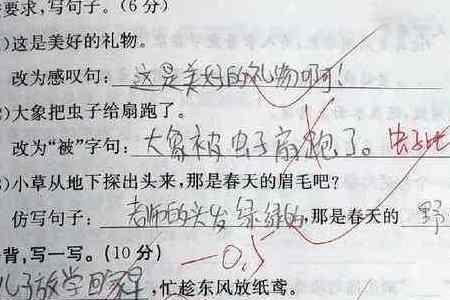 要求,写句子。(6分)
)这是美好的礼物。
改为感叹句: 这是美好的礼物啊!
)大象把虫子给扇跑了。
改为“被”字句: 大象被虫子扇跑了。 虫子
)小草从地下探出头来,那是春天的眉毛吧?
仿写句子: 老师的头发绿绿的,那是春天的 野
背,写一写。(10分) -0.5
儿子放学回家早,忙趁东风放纸鸢。